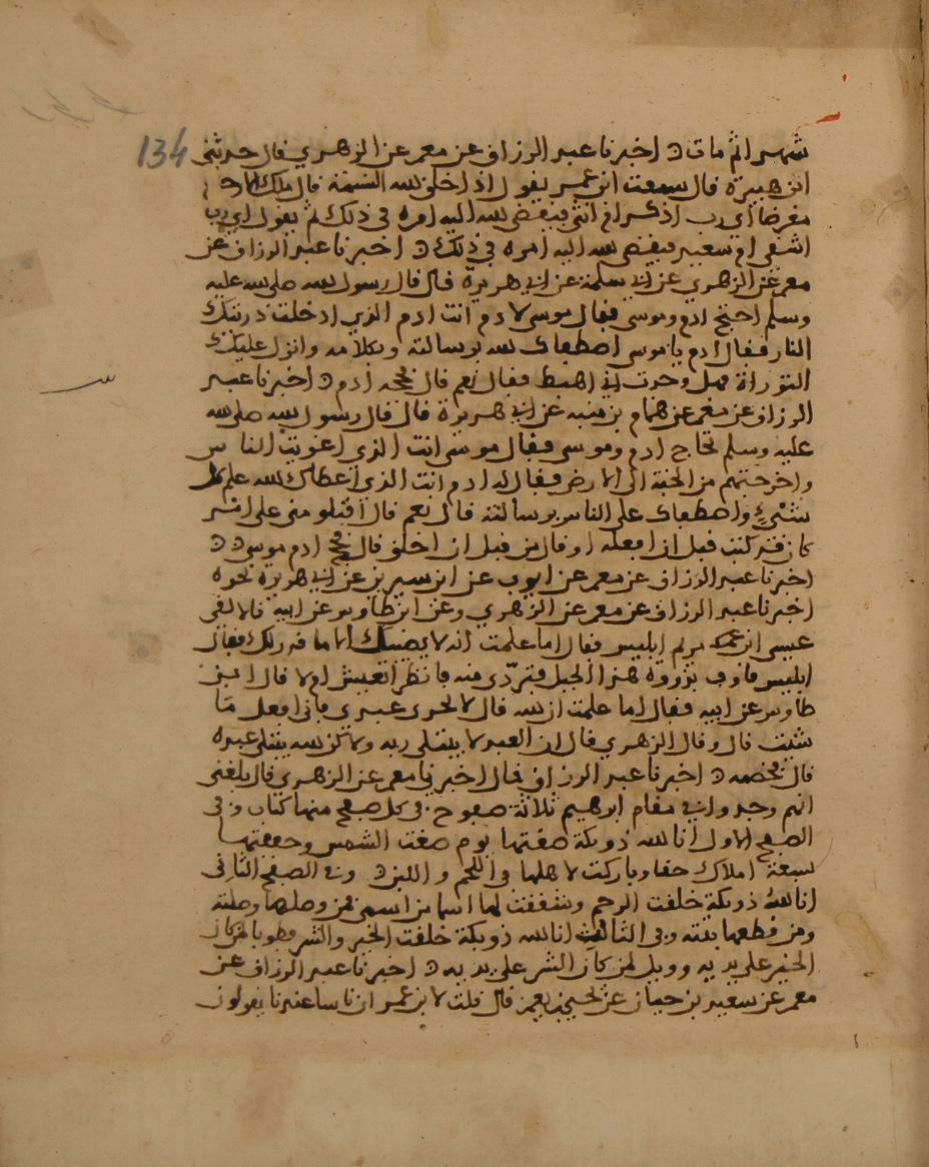 134
شهرا ثم مات اخبرنا عبد الرزاق عن معمر عن الزهري قال حدثني
ابن هبيرة قال سمعت ابن عمر يقول اذا خلق الله النسمة قال ملك الارحام
معرضا اي رب اذكر ام انثى فيقضي الله اليه امره في ذلك ثم يقول اي رب
اشقي ام سعيد فيقضي الله اليه امره في ذلك اخبرنا عبد الرزاق عن
معمر عن الزهري عن ابي سلمة عن ابي هريرة قال قال رسول الله صلى الله عليه
وسلم احتج ادم وموسى فقال موسى لادم انت ادم الذي ادخلت ذريتك
النار فقال ادم يا موسى اصطفاك الله برسالته وبكلامه وانزل عليك
التوراة فهل وجدت اني اهبط فقال نعم قال فحجه ادم اخبرنا عبد
الرزاق عن معمر عن همام بن منبه عن ابي هريرة قال قال رسول الله صلى الله
عليه وسلم تحاج ادم وموسى فقال موسى انت الذي اغويت الناس
واخرجتهم من الجنة الى الارض فقال له ادم انت الذي اعطاك الله علم كل
شيء واصطفاك على الناس برسالته قال نعم قال اتلومني على امر
كان قد كتب قبل ان افعله او قال من قبل ان اخلق قال فحج ادم موسى
اخبرنا عبد الرزاق عن معمر عن ايوب عن ابن سيرين عن ابي هريرة نحوه
اخبرنا عبد الرزاق عن معمر عن الزهري وعن ابن طاوس عن ابيه قالا لقي
عيسى ابن مريم ابليس فقال اما علمت انه لا يصيبك الا ما قدر لك فقال
ابليس فاوف بذروة هذا الجبل فتردى منه فانظر اتعيش ام لا قال ابن
طاوس عن ابيه فقال اما علمت ان الله قال لا يجربني عبدي فاني افعل ما
شيت قال وقال الزهري قال ان العبد لا يبتلي ربه ولاكن الله يبتلي عبده
قال فخصمه اخبرنا عبد الرزاق قال اخبرنا معمر عن الزهري قال بلغني
انهم وجدوا في مقام ابرهيم ثلاثة صفوح في كل صفح منها كتاب وفي
الصفح الاول انا الله ذو بكة صغتها يوم صغت الشمس وحففتها
بسبعة املاك حفا وباركت لاهلها في اللحم واللبن وفي الصفح الثاني
انا الله ذو بكة خلقت الرحم وشققت لها اسما من اسمي فمن وصلها وصلته
ومن قطعها بتته وفي الثالث انا الله ذو بكة خلقت الخير والشر فطوبا لمن كان
الخير على يديه وويل لمن كان الشر على يديه اخبرنا عبد الرزاق عن
معمر عن سعيد بن حيان عن يحيى بن يعمر قال قلت لابن عمر ان ناسا عندنا يقولون